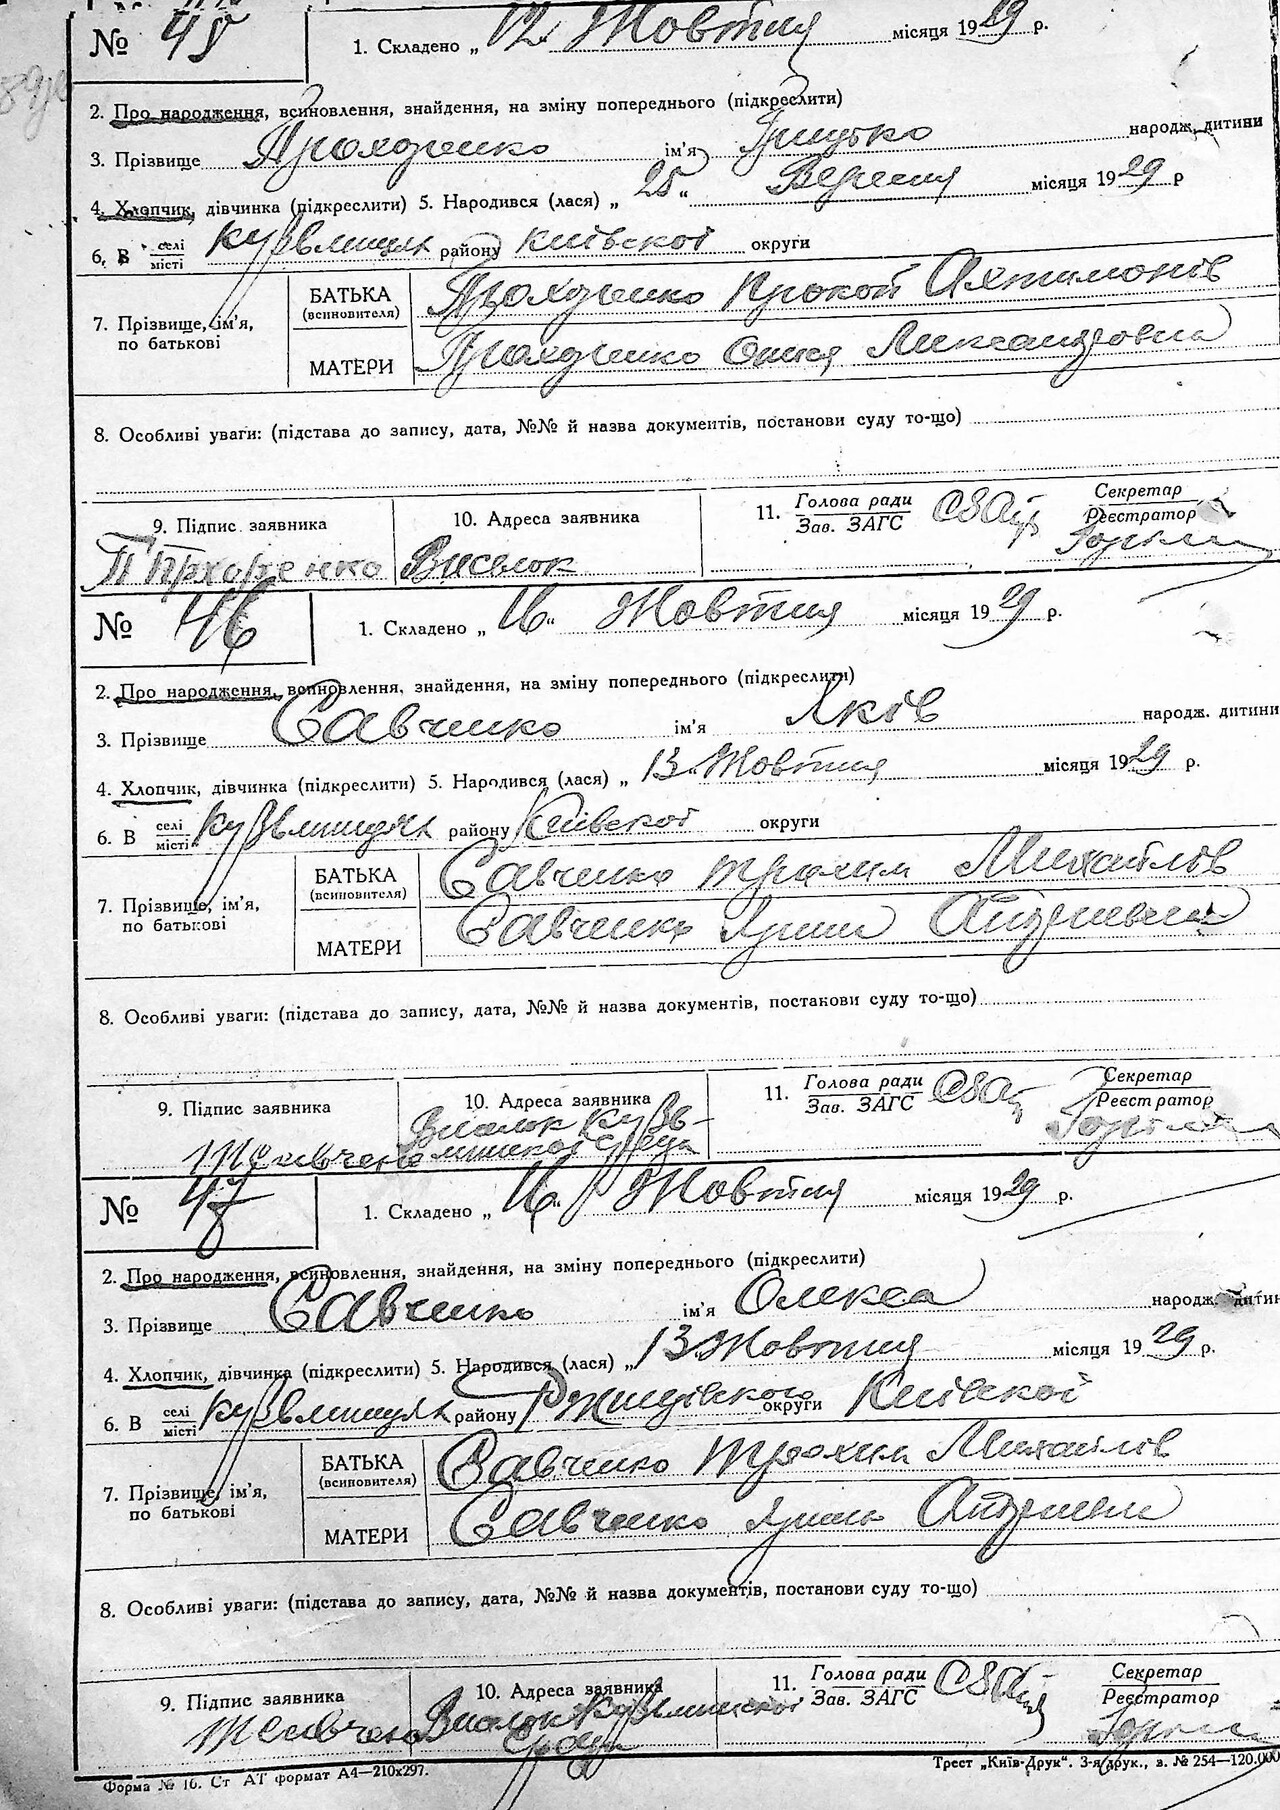 № 45 1. Складено „ 12 „ Жовтня місяця 1929 р.
2. Про народження, всиновлення, знайдення, на зміну попереднього (підкреслити)
3. Прізвище Прохоренко ім'я Грицько народж. дитини
4. Хлопчик, дівчинка (підкреслити) 5. Народився (лася) „ 25 „ Вересня місяця 1929 р
6. В селі місті району Київської округи
7. Прізвище, ім'я, по батькові
БАТЬКА (всиновителя) Прохоренко Прокоп
МАТЕРИ Прохоренко Александровна
8. Особливі уваги: (підстава до запису, дата, №№ й назва документів, постанови суду то-що)
9. Підпис заявника 10. Адреса заявника 11. Голова ради Зав. ЗАГС Секретар Реєстратор
П Прхоренко Виселок
№ 46 1. Складено „ 16 „ Жовтня місяця 1929 р.
2. Про народження, всиновлення, знайдення, на зміну попереднього (підкреслити)
3. Прізвище Савченко ім'я Яків народж. дитини
4. Хлопчик, дівчинка (підкреслити) 5. Народився (лася) „ 13 „ Жовтня місяця 1929 р.
6. В селі місті району Київської округи
7. Прізвище, ім'я, по батькові
БАТЬКА (всиновителя) Савченко Трохим Михайлів
МАТЕРИ Савченко Ярина Андриевна
8. Особливі уваги: (підстава до запису, дата, №№ й назва документів, постанови суду то-що)
9. Підпис заявника 10. Адреса заявника 11. Голова ради Зав. ЗАГС Секретар Реєстратор
№ 47 1. Складено „ 16 „ Жовтня місяця 1929 р.
2. Про народження, всиновлення, знайдення, на зміну попереднього (підкреслити)
3. Прізвище Савченко ім'я Олекса народж. дитин
4. Хлопчик, дівчинка (підкреслити) 5. Народився (лася) „ 13 „ Жовтня місяця 1929 р.
6. В селі місті району Ржищівского округи Київскої
7. Прізвище, ім'я, по батькові
БАТЬКА (всиновителя) Савченко Трохим Михайлів
МАТЕРИ Савченко Ярина
8. Особливі уваги: (підстава до запису, дата, №№ й назва документів, постанови суду то-що)
9. Підпис заявника 10. Адреса заявника 11. Голова ради Зав. ЗАГС Секретар Реєстратор
Форма № 16. Ст АТ формат А4—210х297. Трест „Київ-Друк". 3-я друк., з. № 254—120.000